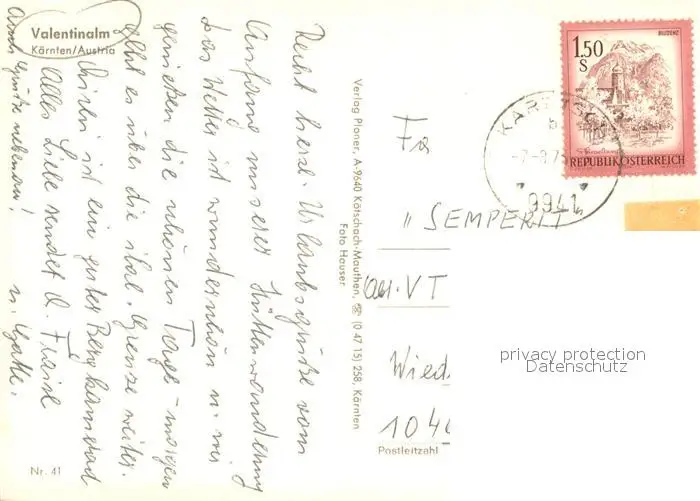 Valentinalm
Kärnten/Austria
Recht herzl. Urlaubsgrüße vom
Anfang unserer Hüttenwanderung
Das Wetter ist wunderschön u. wir
genießen die schönen Tage - morgen
geht es über die ital. Grenze weiter.
ist ein guter Bergkamerad
Alles Liebe sendet
u. Gatte.
Nr. 41
Verlag Planer, A-9640 Kötschach-Mauthen, ☎ (0 47 15) 258, Kärnten
Foto Hauser
BLUDENZ
1.50
S
REPUBLIK ÖSTERREICH
9941
Fa
"SEMPERIT"
VT
Wied
104
Postleitzahl
privacy protection
Datenschutz